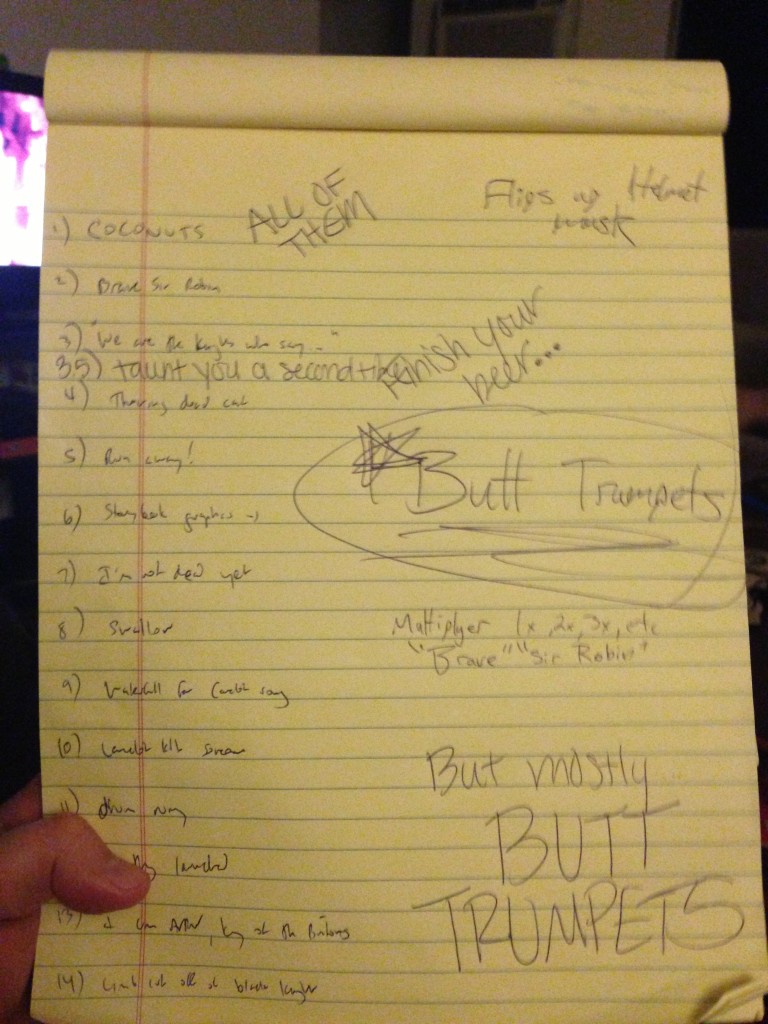 Flips up Helmet
mask
ALL OF
THEM
1) COCONUTS
2) Brave Sir Robin
3) "We are the knights who say..."
35) taunt you a second time
Finish your
beer...
4) Throwing dead cat
5) Run away!
Butt Trumpets
6) Storybook graphics
7) I'm not dead yet
8) Swallow
Multiplyer 1x, 2x, 3x, etc
"Brave" "Sir Robin"
9) Waterfall for Camelot song
10) Lancelot
But mostly
BUTT
TRUMPETS
11)
13) I am Arthur, king of the Britons
14) Limb cut off of black knight